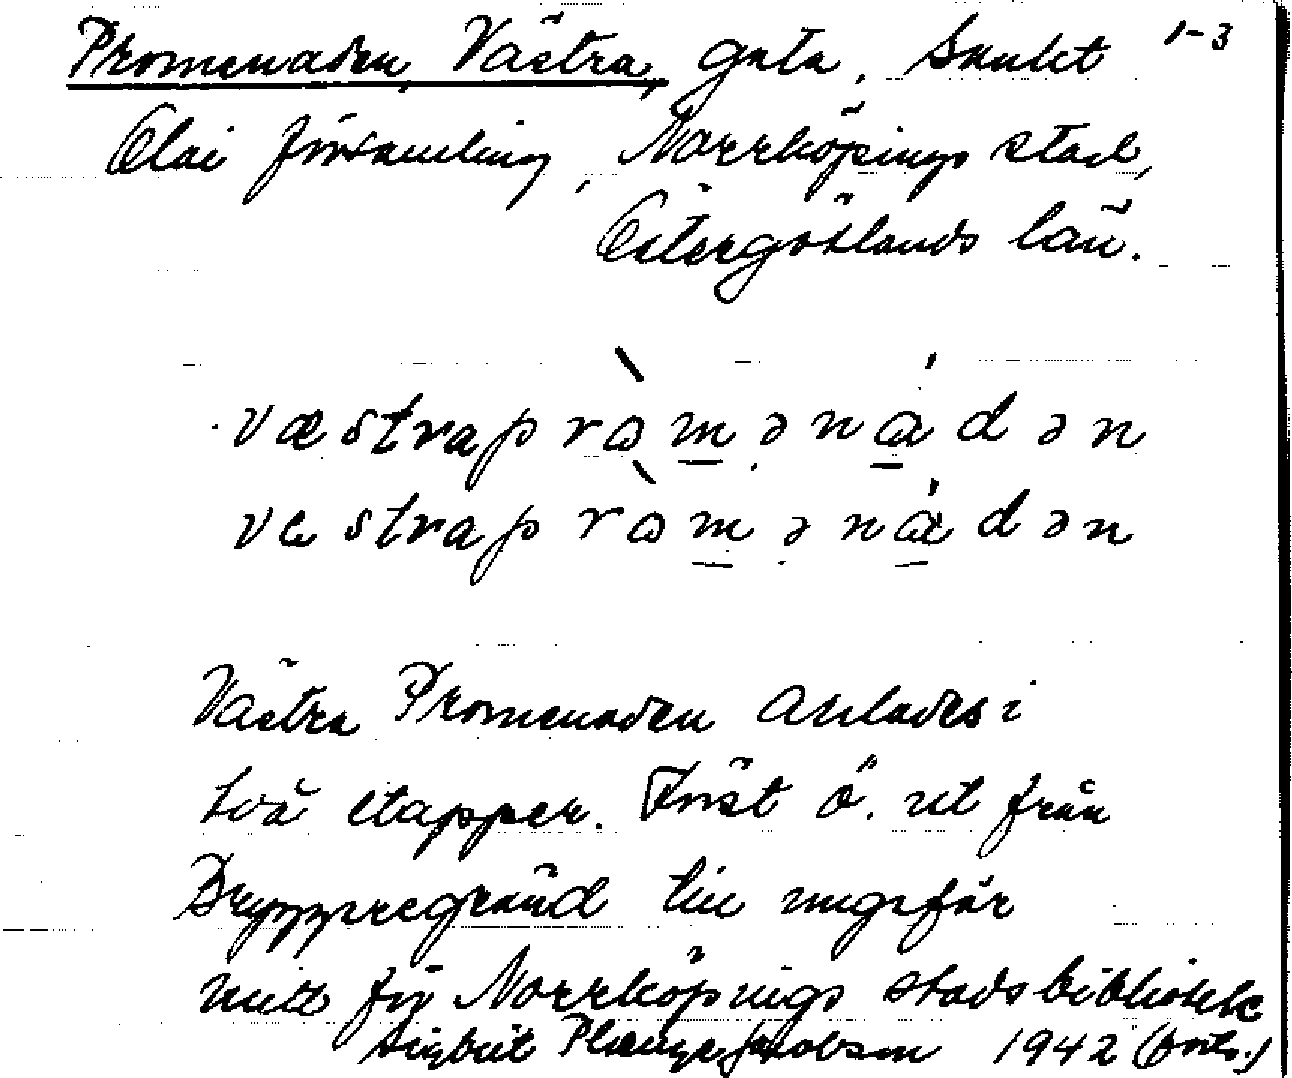 Promenaden, Västra, gata, Sankt 1-3
Olai församling, Norrköpings stad,
Östergötlands län.
væstrapròmənádən
vɛstrapròmənádən
Västra Promenaden anlades i
två etapper. Först ö. ut från
Bryggaregränd till ungefär
mitt för Norrköpings stadsbibliotek
Sigbrit Plænge Jacobson 1942 (forts.)